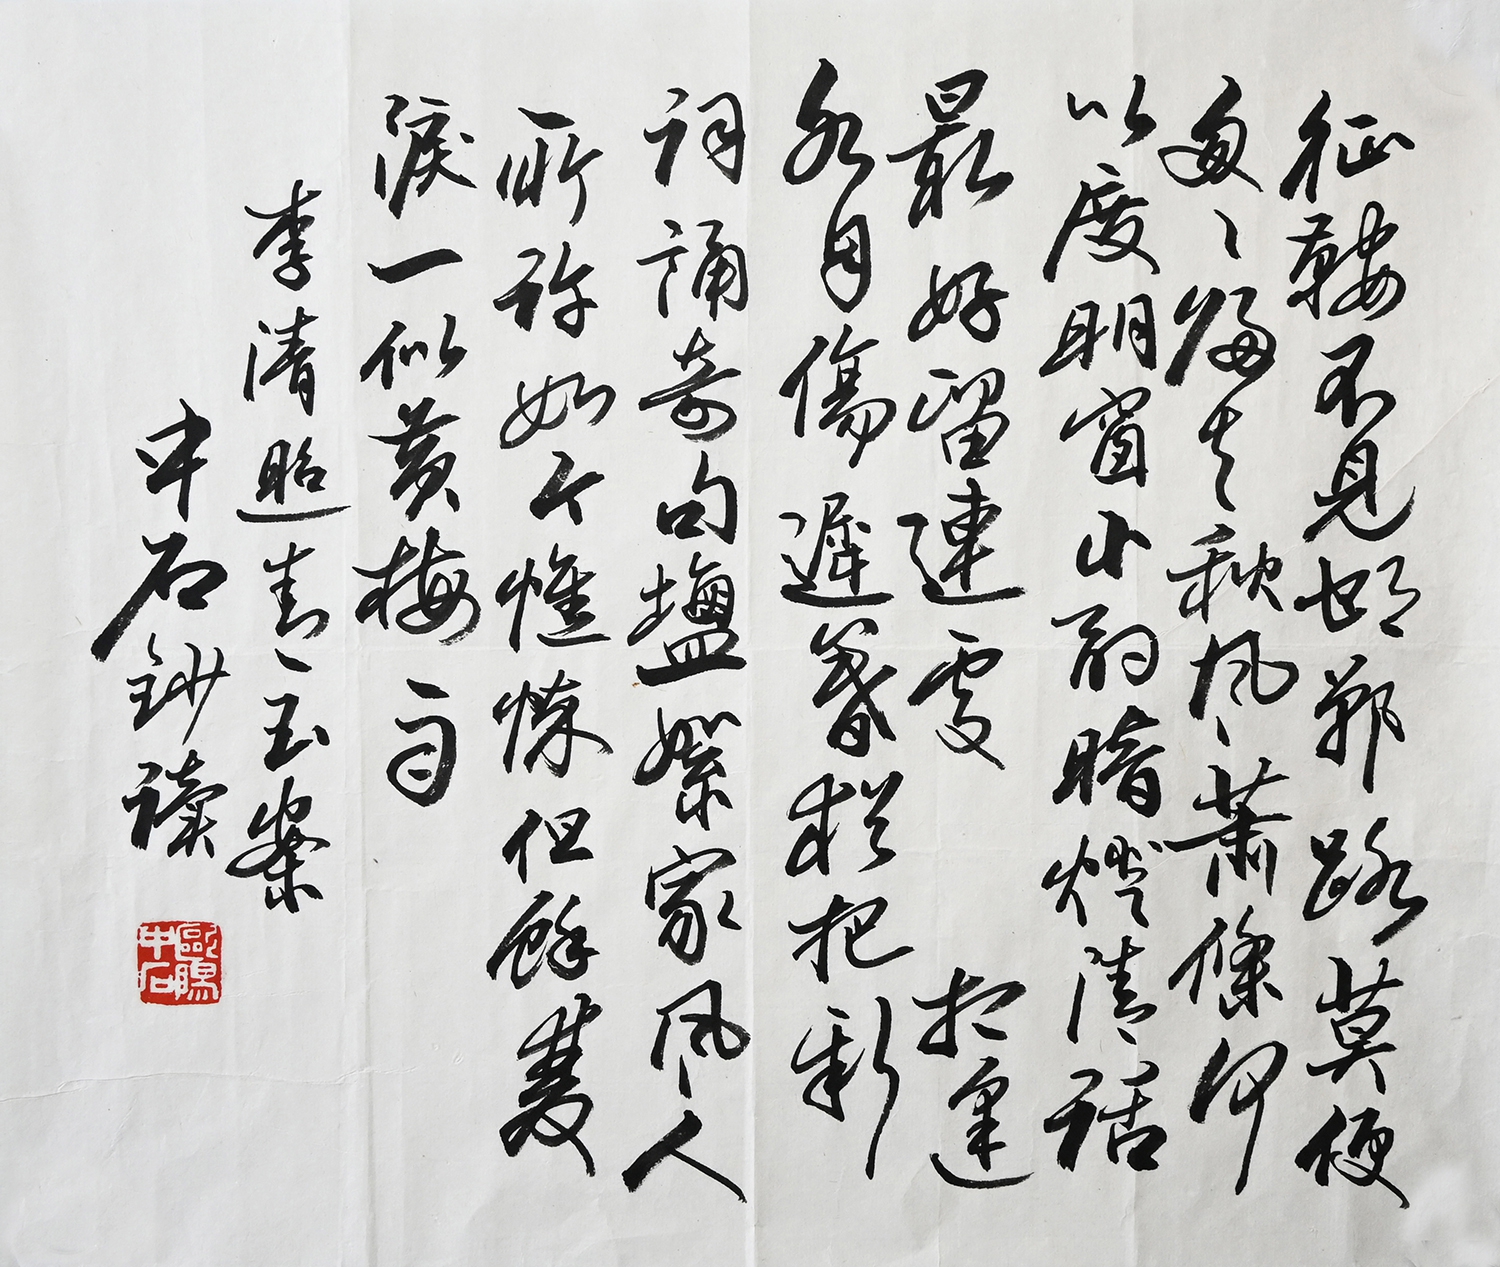 征鞍不見邯鄲路莫便
匆〻歸去秋風蕭條何
以度明窗小酌暗燈清話
最好留連處 相逢
各自傷遲暮猶把新
詞誦奇句鹽絮家風人
所許如今憔悴但餘雙
淚一似黃梅雨
李清照青玉案
中石鈔讀
歐陽中石